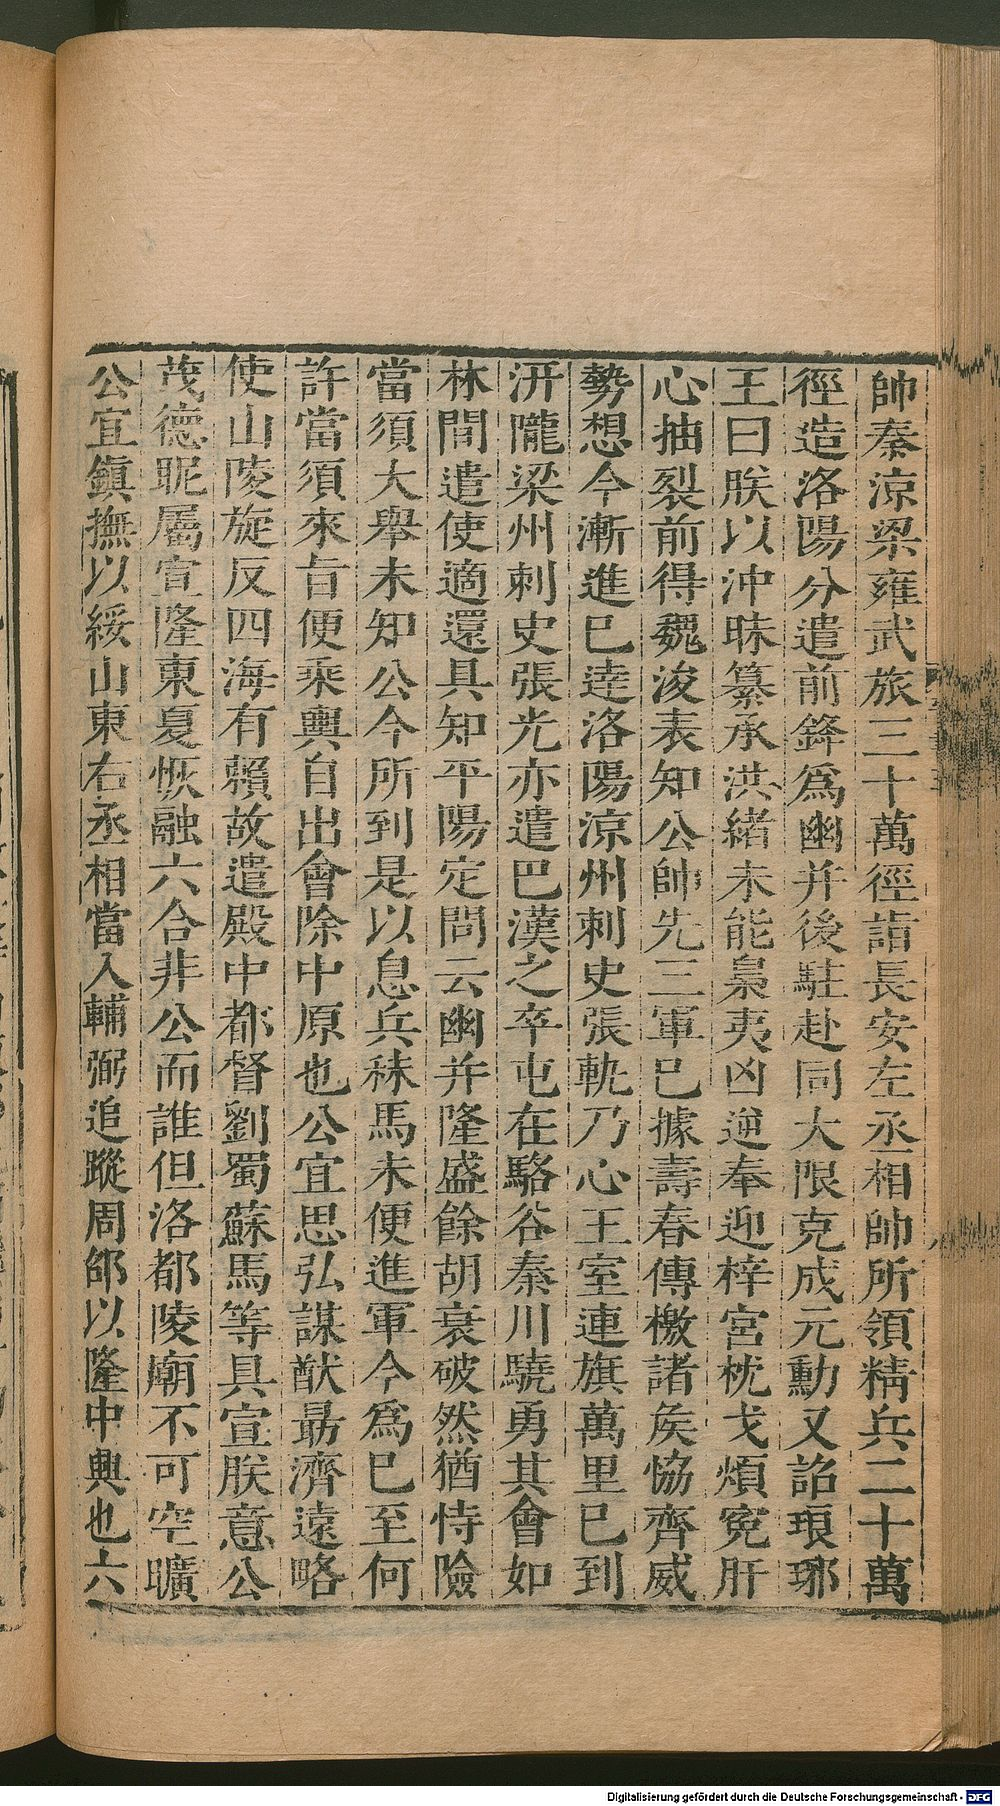 帥秦涼梁雍武旅三十萬徑詣長安左丞相帥所領精兵二十萬
徑造洛陽分遣前鋒爲幽并後駐赴同大限克成元勳又詔琅邪
王曰朕以沖昧纂承洪緒未能梟夷凶逆奉迎梓宮枕戈煩冤肝
心抽裂前得魏浚表知公帥先三軍已據壽春傳檄諸矦恊齊威
勢想今漸進已達洛陽涼州刺史張軌乃心王室連旗萬里已到
汧隴梁州刺史張光亦遣巴漢之卒屯在駱谷秦川驍勇其會如
林間遣使適還具知平陽定問云幽并隆盛餘胡衰破然猶恃險
當須大舉未知公今所到是以息兵秣馬未便進軍今爲已至何
許當須來旨便乘輿自出會除中原也公宜思弘謀猷勗濟遠略
使山陵旋反四海有賴故遣殿中都督劉蜀蘇馬等具宣朕意公
茂德昵屬宣隆東夏恢融六合非公而誰但洛都陵廟不可空曠
公宜鎮撫以綏山東右丞相當入輔弼追蹤周邵以隆中興也六
Digitalisierung gefördert durch die Deutsche Forschungsgemeinschaft - DFG